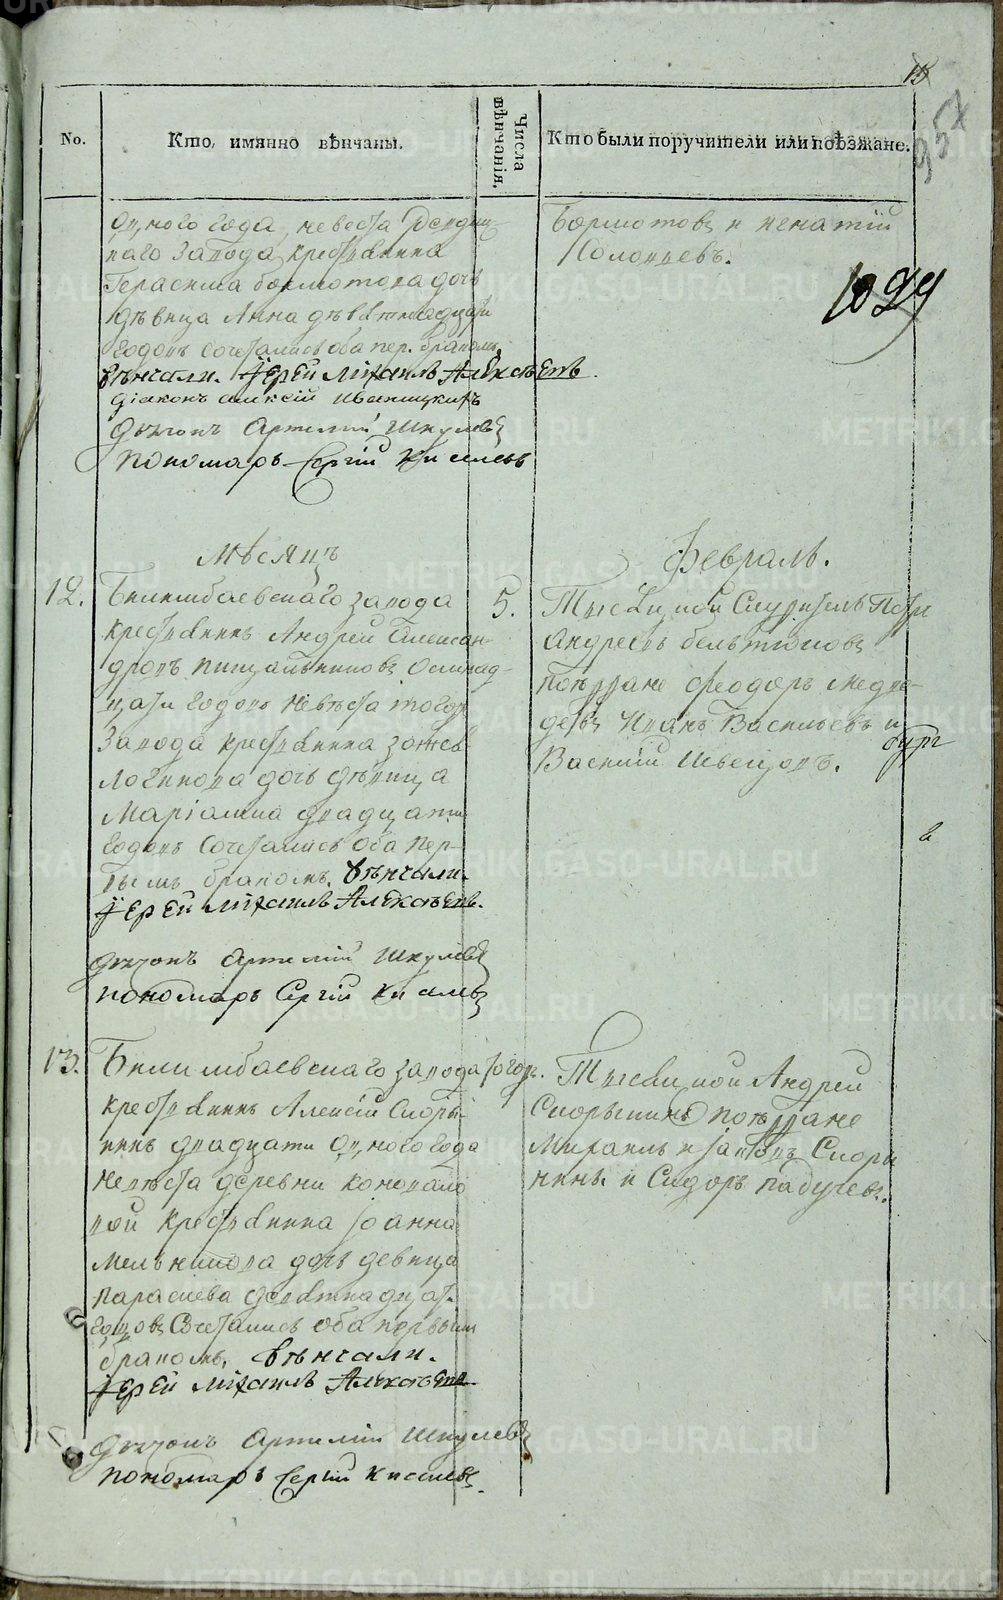 15
957
No.
Кто, имянно вѣнчаны.
Числа вѣнчанія.
Кто были поручители или поѣзжане.
одного года, невеста
наго завода крестьянина
Герасима Бормотова дочь
дѣвица Анна девятнадцати
годовъ сочетались оба пер. бракомъ.
вѣнчали. Іерей Михаилъ Алексѣевъ.
Діаконъ Алексій Иваницкихъ
дьячокъ Артемий Шкулевъ
пономарь Сергій Киселевъ
Бормотовъ и Игнатій
1029
Мѣсяцъ
Февраль.
12.
Билимбаевскаго завода
крестьянинъ Андрей Алексан-
дровъ Пищальниковъ осмнад-
цати годовъ невѣста тогоже
завода крестьянина
Логинова дочь дѣвица
Маріамна двадцати
годовъ сочетались оба пер-
вымъ бракомъ. вѣнчали.
Іерей Михаилъ Алексѣевъ.
дьячокъ Артемий Шкулевъ
пономарь Сергій Киселевъ
5.
Тысяцкой Служитель Петръ
Андреевъ Бельтюковъ
поѣзжане Феодоръ Медве-
девъ Иванъ Васильевъ и
Василий Швецовъ.
13.
Билимбаевскаго завода
крестьянинъ Алексій Скоры-
нинъ двадцати одного года
невѣста деревни Конovalо
вой крестьянина Іоанна
Мельникова дочь девица
Параскева девятнадцати
годовъ сочетались оба первым
бракомъ, вѣнчали.
Іерей Михаилъ Алексѣевъ
дьячокъ Артемий Шкулевъ
пономарь Сергій Киселевъ.
тогоже.
Тысяцкой Андрей
Скорынинъ поѣзжане
Михаилъ и Іаковъ Скоры
нины и Сидоръ Пабучевъ.
METRIKI.GASO-URAL.RU